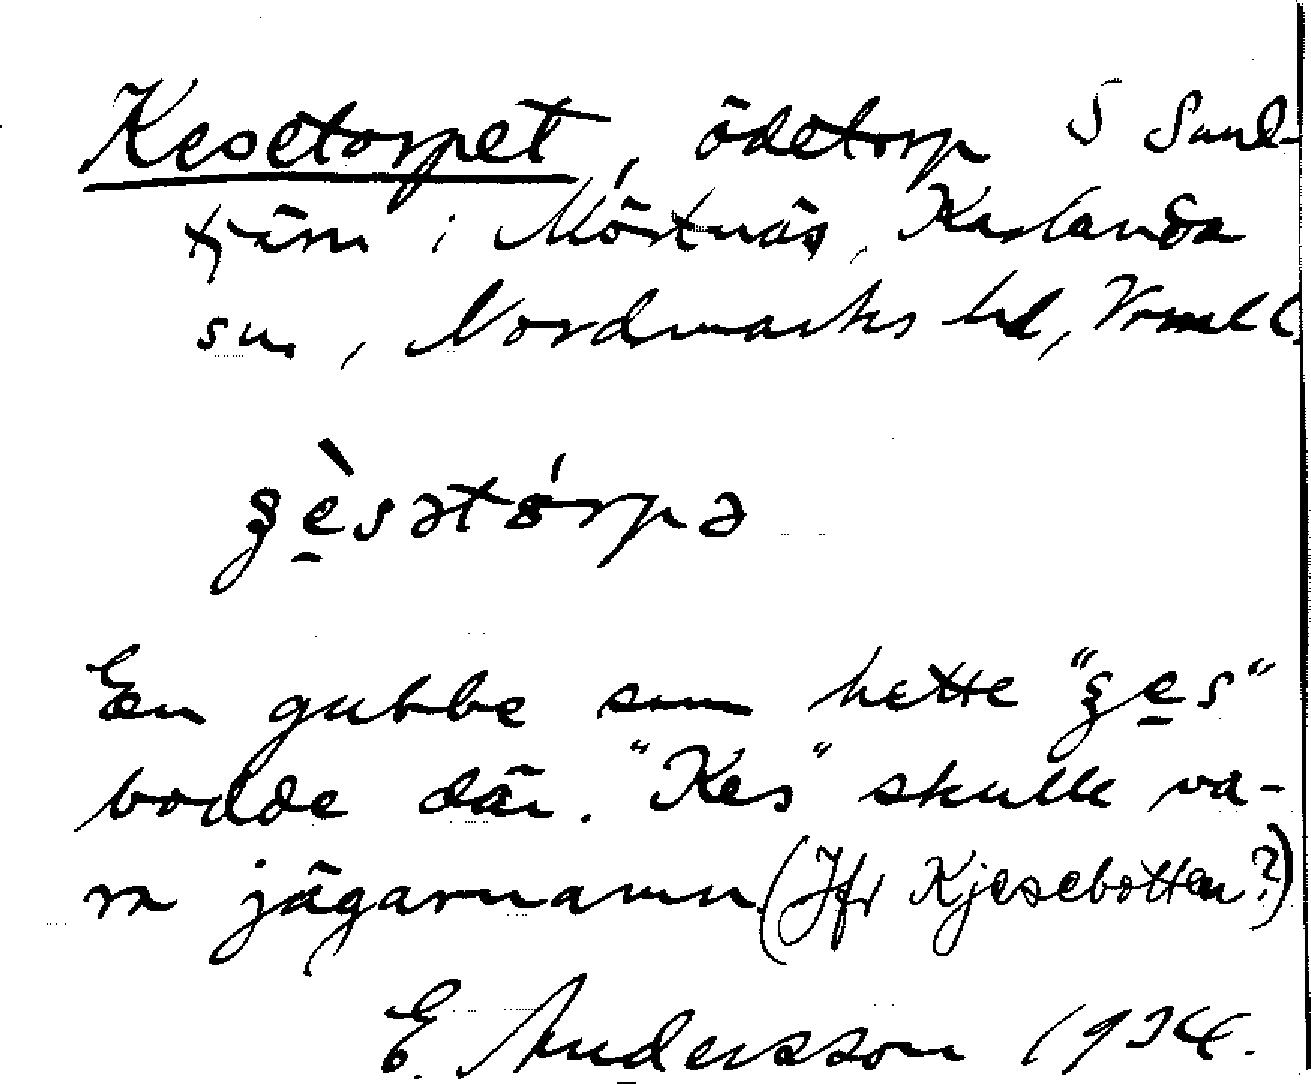 Kesetorpet, ödetorp S Sund-
tjärn i Mörtnäs, Karlanda
sn, Nordmarks hd, Vrml l.
ʒè̱sətórpə
En gubbe som hette "ʒe̱s"
bodde där. "Kes" skulle va-
ra jägarnamn (Jfr Kjesebotten?)
E. Andersson 1934.